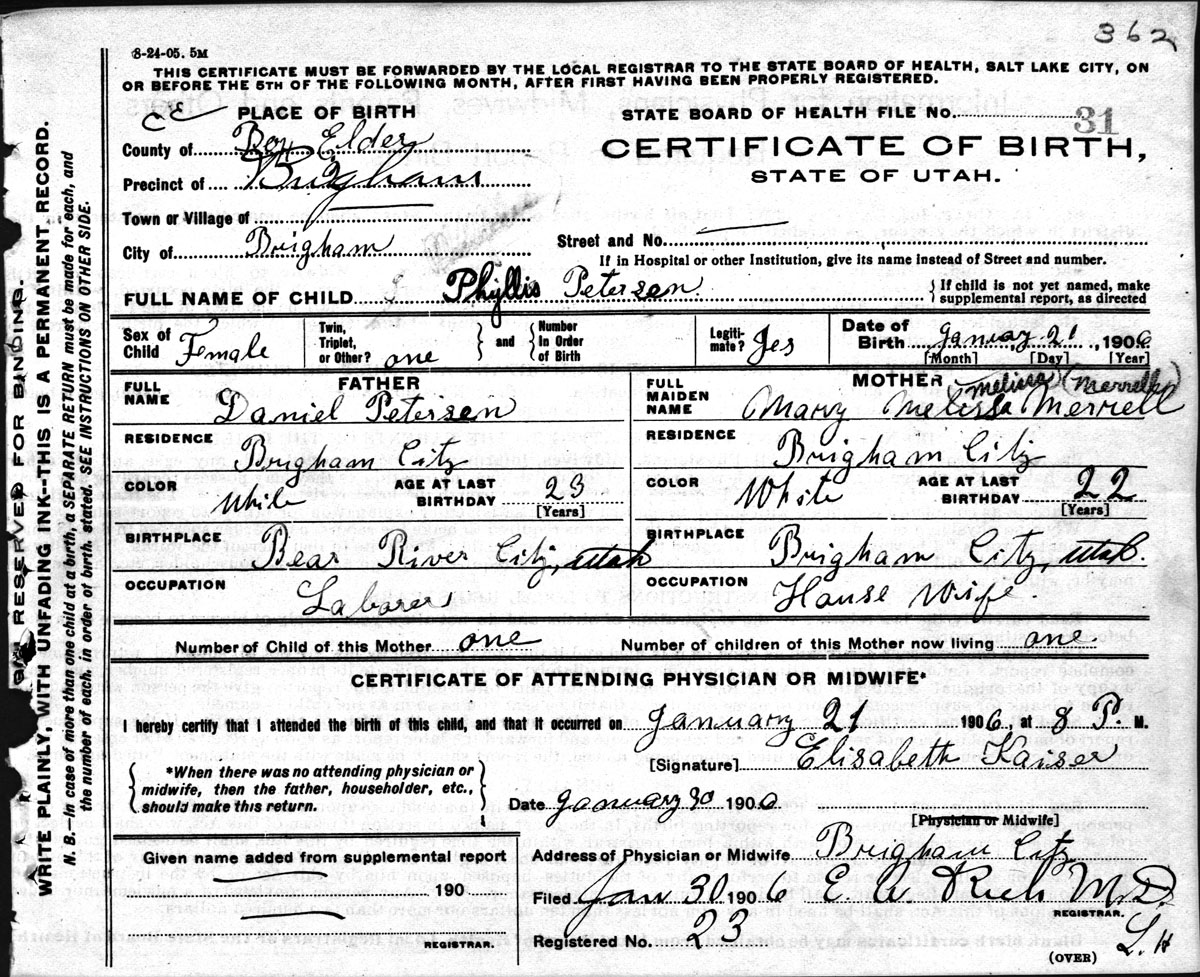 362
8-24-05. 5M
THIS CERTIFICATE MUST BE FORWARDED BY THE LOCAL REGISTRAR TO THE STATE BOARD OF HEALTH, SALT LAKE CITY, ON
OR BEFORE THE 5TH OF THE FOLLOWING MONTH, AFTER FIRST HAVING BEEN PROPERLY REGISTERED.
PLACE OF BIRTH
STATE BOARD OF HEALTH FILE No. 31
County of Box Elder
CERTIFICATE OF BIRTH,
Precinct of Brigham
STATE OF UTAH.
Town or Village of
City of Brigham
Street and No.
If in Hospital or other Institution, give its name instead of Street and number.
FULL NAME OF CHILD Phyllis Petersen. { If child is not yet named, make
supplemental report, as directed
Sex of Child Female Twin, Triplet, or Other? one } and { Number In Order of Birth Legitimate? Yes Date of Birth January 21, 1906
[Month] [Day] [Year]
FATHER
MOTHER Melissa (Merrell)
FULL NAME Daniel Petersen
FULL MAIDEN NAME Mary Melissa Merrell
RESIDENCE Brigham City
RESIDENCE Brigham City
COLOR White AGE AT LAST BIRTHDAY 23 [Years]
COLOR White AGE AT LAST BIRTHDAY 22 [Years]
BIRTHPLACE Bear River City, Utah
BIRTHPLACE Brigham City, Utah.
OCCUPATION Laborer
OCCUPATION House Wife.
Number of Child of this Mother one Number of children of this Mother now living one
CERTIFICATE OF ATTENDING PHYSICIAN OR MIDWIFE*
I hereby certify that I attended the birth of this child, and that it occurred on January 21 1906, at 8 P. M.
{ *When there was no attending physician or
midwife, then the father, householder, etc.,
should make this return. }
[Signature] Elisabeth Kaiser
Date January 30 1906
[Physician or Midwife]
Given name added from supplemental report
190
REGISTRAR.
Address of Physician or Midwife Brigham City
Filed Jan 30 1906 E. A. Rich M.D.
REGISTRAR.
Registered No. 23
L. H
(OVER)
RESERVED FOR BINDING.
WRITE PLAINLY, WITH UNFADING INK--THIS IS A PERMANENT RECORD.
N. B.—In case of more than one child at a birth, a SEPARATE RETURN must be made for each, and
the number of each, in order of birth, stated. SEE INSTRUCTIONS ON OTHER SIDE.